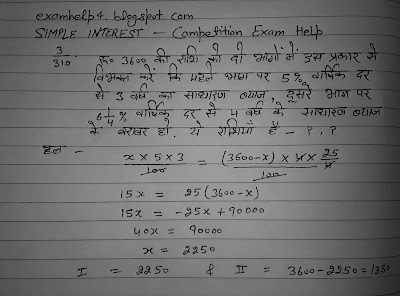 examhelp4.blogspot.com
SIMPLE INTEREST - Competition Exam Help
3/310. रू० 3600 की राशि को दो भागों में इस प्रकार से
विभक्त करें कि पहले भाग पर 5% वार्षिक दर
से 3 वर्ष का साधारण ब्याज, दूसरे भाग पर
6 1/4 % वार्षिक दर से 4 वर्ष के साधारण ब्याज
के बराबर हो. ये राशियाँ हैं - ?, ?
हल -
x × 5 × 3 / 100 = (3600-x) × 4 × 25/4 / 100
15x = 25 (3600-x)
15x = -25x + 90000
40x = 90000
x = 2250
I = 2250 & II = 3600-2250 = 1350